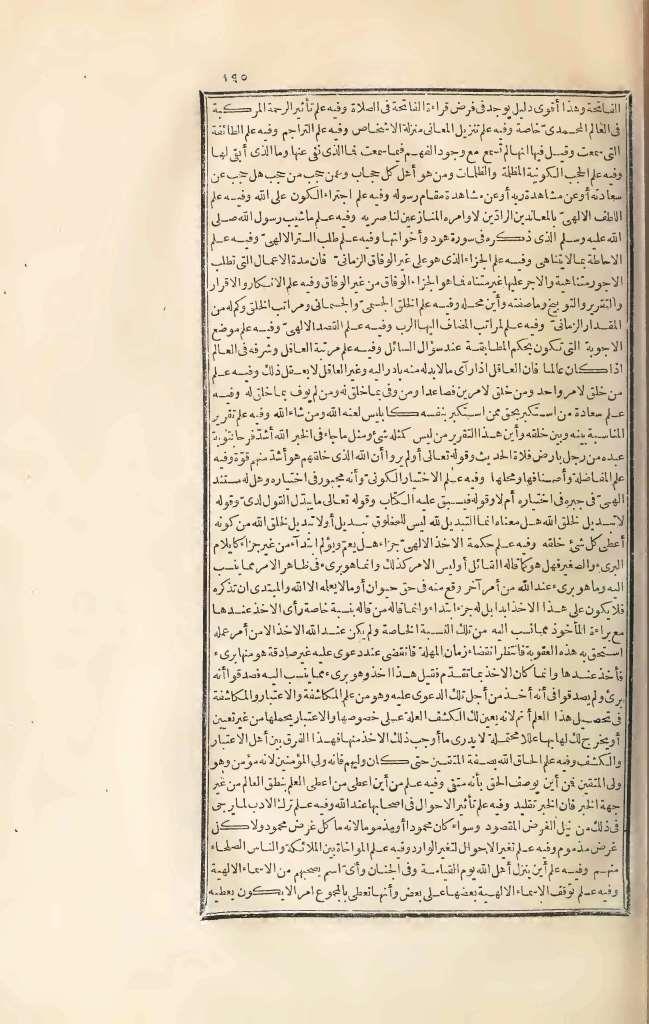 ١٩٥
الفاتحة وهذا أقوى دليل يوجد في فرض قراءة الفاتحة في الصلاة وفيه علم تأثير الرحمة المركبة
في العالم المحمدي خاصة وفيه علم تنزيل المعاني منزلة الاشخاص وفيه علم التراجم وفيه علم الطائفة
التي سمعت وقيل فيها انها لم تسمع مع وجود الفهم فيما سمعت فما الذي نفى عنها وما الذي أبقى لها
وفيه علم الحجب الكونية المظلمة والظلمات ومن هو أهل كل حجاب وممن حجب من حجب هل حجب عن
سعادته أو عن مشاهدة ربه أو عن مشاهدة مقام رسوله وفيه علم اجتراء الكون على الله وفيه علم
اللطف الالهي بالمعاندين الرادّين لاوامره المنازعين لناصريه وفيه علم ما شيب رسول الله صلى
الله عليه وسلم الذي ذكره في سورة هود وأخواتها وفيه علم طلب الستر الالهي وفيه علم
الاحاطة بما لا يتناهى وفيه علم الجزاء الذي هو على غير الوفاق الزماني فان مدة الاعمال التي تطلب
الاجور متناهية والاجر عليها غير متناه فما هو الجزاء الوفاق من غير الوفاق وفيه علم الانكار والاقرار
والتقرير والتوبيخ وما صفته وأين محله وفيه علم الخلق الجسمي والجسماني ومراتب الخلق وكم له من
المقدار الزماني وفيه علم المراتب المضاف اليها الرب وفيه علم القصد الالهي وفيه علم موضع
الاجوبة التي تكون بحكم المطابقة عند سؤال السائل وفيه علم مرتبة العاقل وشرفه في العالم
اذا كان عالما فان العاقل اذا رأى ما لا بد له منه بادر اليه وغير العاقل لا يعقل ذلك وفيه علم
من خلق لامر واحد ومن خلق لامرين فصاعدا ومن وفى بما خلق له ومن لم يوف بما خلق له وفيه
علم سعادة من استكبر بحق ممن استكبر بنفسه كابليس لعنه الله ومن شاء الله وفيه علم تقرير
المناسبة بينه وبين خلقه وأين هذا التقرير من ليس كمثله شئ ومثل ما جاء في الخبر الله أشدّ فرحا بتوبة
عبده من رجل بارض فلاة الحديث وقوله تعالى أولم يروا أن الله الذي خلقهم هو أشدّ منهم قوّة وفيه
علم المفاضلة وأصنافها ومحلها وفيه علم الاختيار الكوني وأنه مجبور في اختياره وهل له مستند
الهي في جبره في اختياره أم لا وقوله فيسبق عليه الكتاب وقوله تعالى ما يبدّل القول لدي وقوله
لا تبديل لخلق الله هل معناه انما التبديل لله ليس للمخلوق تبديل أو لا تبديل لخلق الله من كونه
أعطى كل شئ خلقه وفيه علم حكمة الاخذ الالهي جزاء هل يعم ويؤلم ابتداء من غير جزاء كايلام
البريء والصغير فهل هو كما قاله القائل أو ليس الامر كذلك وانما هو بريء في ظاهر الامر مما ينسب
اليه وما هو بريء عند الله من أمر آخر وقع منه في حق حيوان أو ما لا يعلمه الا الله والمبتدى ان تذكره
فلا يكون على هذا الاخذ ابدا بل له جزء ابتداء وانما قاله من قاله بنسبة خاصة رأى الاخذ عندها
مع براءة المأخوذ مما نسب اليه من تلك النسبة الخاصة ولم يكن عند الله الاخذ الا من أمر عمله
استحق به هذه العقوبة فانتظر انقضاء زمان المهلة فانقضى عند دعوى عليه غير صادقة هو منها بريء
فأخذ عندها وانما كان الاخذ بما تقدّم فقيل هذا اخذ وهو بريء مما ينسب اليه فصدقوا أنه
بريء ولم يصدقوا في أنه أخذ من أجل تلك الدعوى عليه وهو من علم المكاشفة والاعتبار والمكاشفة
في تحصيل هذا العلم أتم لانه يعين لك الكشف العلة على خصوصها والاعتبار يجملها من غير تعيين
أو يخرّج لك لها بها عللا محتملة لا يدرى ما أوجب ذلك الاخذ منها فهذا الفرق بين أهل الاعتبار
والكشف وفيه علم الحاق الله بصفة المتقين حتى كان وليهم فانه ولي المؤمنين لانه مؤمن وهو
ولي المتقين فمن أين يوصف الحق بأنه متقي وفيه علم من أين أعطى من أعطى العلم بنطق العالم من غير
جهة الخبر فان الخبر تقليد وفيه علم تأثير الاحوال في اصحابها عند الله وفيه علم ترك الادب لما يرجى
في ذلك من نيل الغرض المقصود وسواء كان محمودا أو مذموما لانه ما كل غرض محمود ولا كل
غرض مذموم وفيه علم تغير الاحوال لتغير الوارد وفيه علم المواخاة بين الملائكة والناس الصلحاء
منهم وفيه علم أين ينزل أهل الله يوم القيامة وفي الجنان وأيّ اسم يصحبهم من الاسماء الالهية
وفيه علم توقف الاسماء الالهية بعضها على بعض وأنها تعطي بالمجموع امرا لا يكون يعطيه